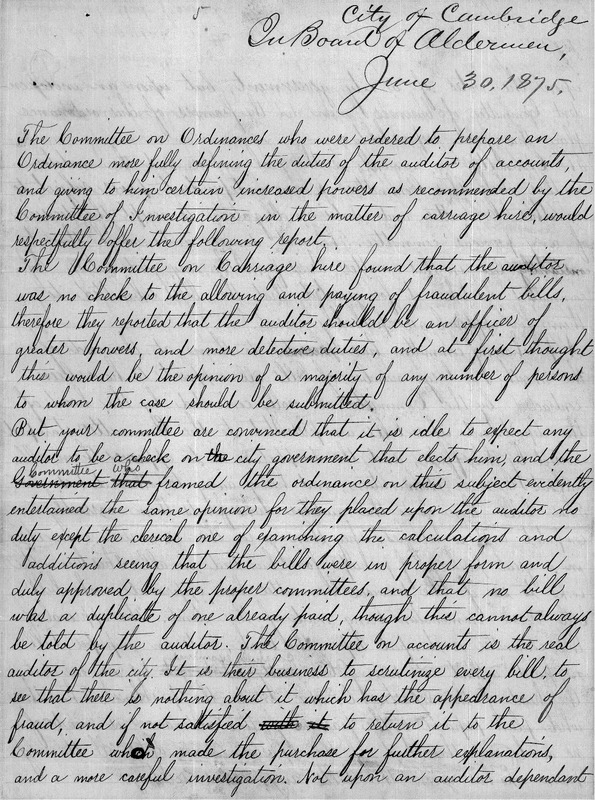 5
City of Cambridge
In Board of Aldermen,
June 30, 1875.
The Committee on Ordinances who were ordered to prepare an
Ordinance more fully defining the duties of the auditor of accounts,
and giving to him certain increased powers as recommended by the
Committee of Investigation in the matter of carriage hire, would
respectfully offer the following report.
The Committee on Carriage hire found that the auditor
was no check to the allowing and paying of fraudulent bills,
therefore they reported that the auditor should be an officer of
greater powers, and more detective duties, and at first thought
this would be the opinion of a majority of any number of persons
to whom the case should be submitted.
But your committee are convinced that it is idle to expect any
auditor to be a check on the city government that elects him, and the
committee was
Government that framed the ordinance on this subject evidently
entertained the same opinion for they placed upon the auditor no
duty except the clerical one of examining the calculations and
additions seeing that the bills were in proper form and
duly approved by the proper committees, and that no bill
was a duplicate of one already paid, though this cannot always
be told by the auditor. The Committee on accounts is the real
auditor of the city. It is their business to scrutinize every bill, to
see that there is nothing about it which has the appearance of
fraud, and if not satisfied with it to return it to the
Committee who made the purchase for further explanations,
and a more careful investigation. Not upon an auditor dependant